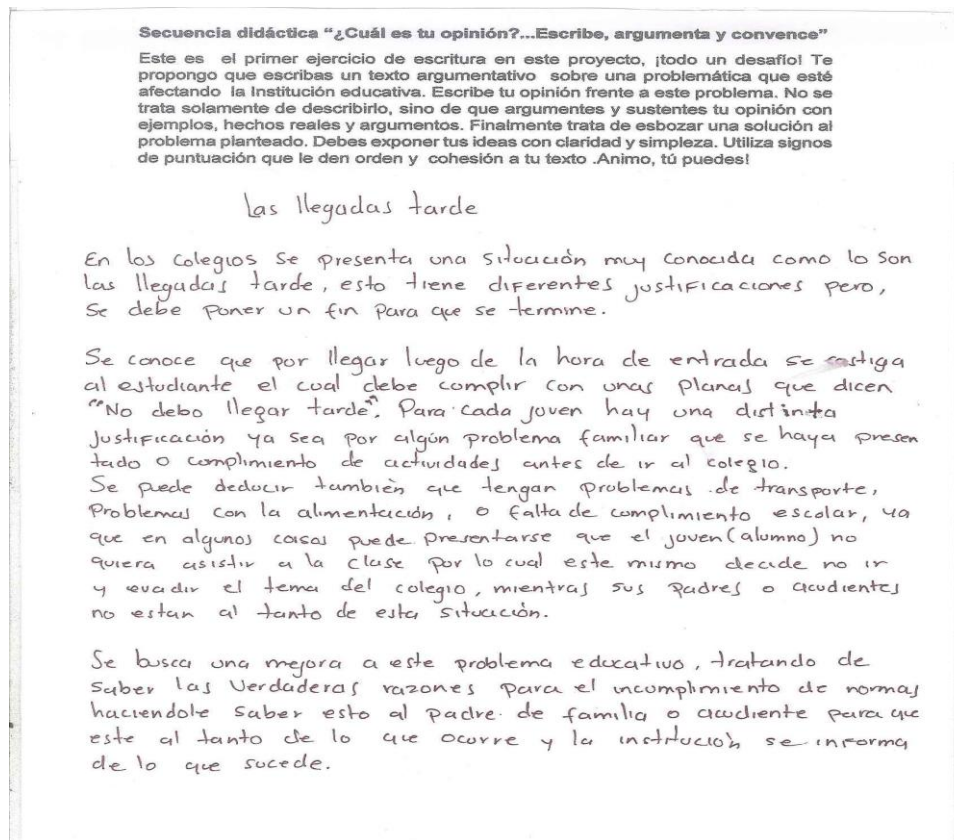 Secuencia didáctica “¿Cuál es tu opinión?...Escribe, argumenta y convence”
Este es el primer ejercicio de escritura en este proyecto, ¡todo un desafío! Te
propongo que escribas un texto argumentativo sobre una problemática que esté
afectando la Institución educativa. Escribe tu opinión frente a este problema. No se
trata solamente de describirlo, sino de que argumentes y sustentes tu opinión con
ejemplos, hechos reales y argumentos. Finalmente trata de esbozar una solución al
problema planteado. Debes exponer tus ideas con claridad y simpleza. Utiliza signos
de puntuación que le den orden y cohesión a tu texto .Animo, tú puedes!
Las llegadas tarde
En los colegios se presenta una situación muy conocida como lo son
las llegadas tarde, esto tiene diferentes justificaciones pero,
se debe poner un fin para que se termine.
Se conoce que por llegar luego de la hora de entrada se castiga
al estudiante el cual debe complir con unas planas que dicen
"No debo llegar tarde". Para cada joven hay una distinta
justificación ya sea por algún problema familiar que se haya presen
tado o cumplimiento de actividades antes de ir al colegio.
Se puede deducir también que tengan problemas de transporte,
problemas con la alimentación, o falta de cumplimiento escolar, ya
que en algunos casos puede presentarse que el joven (alumno) no
quiera asistir a la clase por lo cual este mismo decide no ir
y evadir el tema del colegio, mientras sus padres o acudientes
no estan al tanto de esta situación.
Se busca una mejora a este problema educativo, tratando de
saber las verdaderas razones para el incumplimiento de normas
haciendole saber esto al padre de familia o acudiente para que
este al tanto de lo que ocurre y la institución se informa
de lo que sucede.